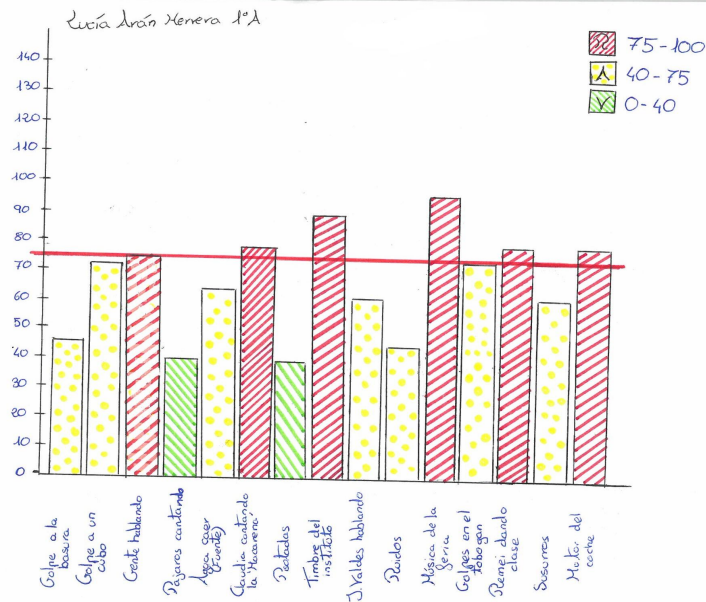 Lucía Arán Herrera 1ºA
75-100
40-75
0-40
140
130
120
110
100
90
80
70
60
50
40
30
20
10
0
Golpe a la
basura
Golpe a un
cubo
Gente hablando
Pájaros cantando
Agua caer
(Fuente)
Claudia cantando
la 'Macarena'
Patadas
Timbre del
instituto
J.Valdes hablando
Ruidos
Música de la
feria
Golpes en el
tobogan
Remei dando
clase
Susurros
Motor del
coche